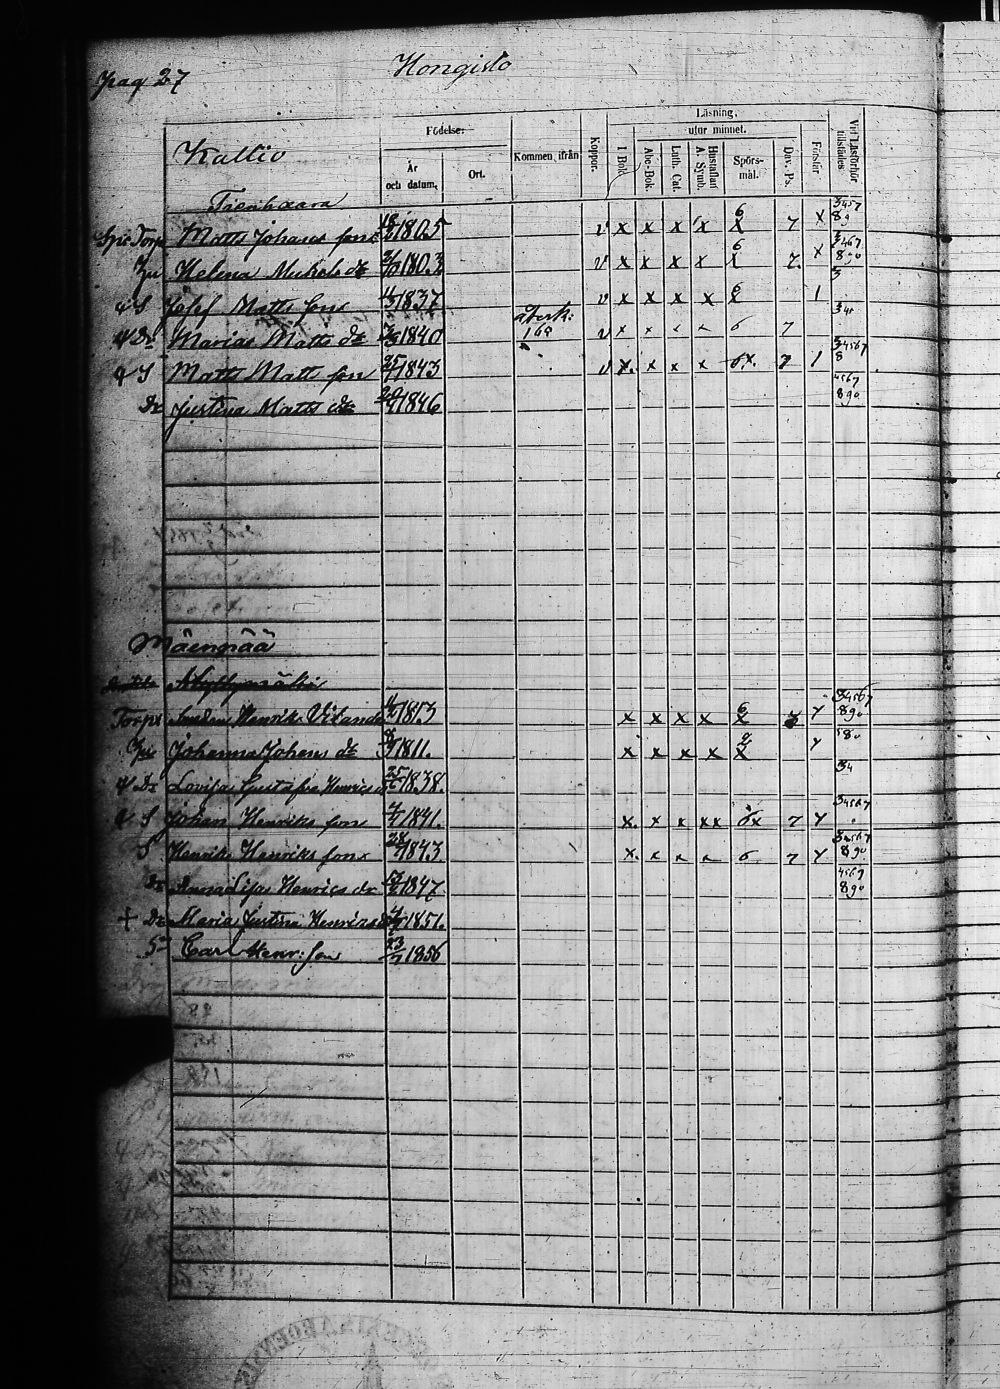 Pag 27
Hongisto
Kallio
Födelse:
År och datum.
Ort.
Kommen ifrån
Koppor.
Läsning,
utur minnet.
I Bok.
Abc-Bok.
Luth. Cat.
Hustaflan A. Symb.
Spörs-mål.
Dav. Ps.
Förstår
Vid Läsförhör tillstädes
Tienhaara
Torp Matts Johans son 1805 v x x x x 6 x 7 x 3457 89
Helena Michels dr 1803 v x x x x 6 x 7. x 3467 890
S Josef Matts son 1837 v x x x x 1 3
Dr Marias Matts dr 1840 återk: 168 v x x 6 7 34
S Matts Matts son 25 1843 v x. x x x 6x. 7 1 34567 8
Dr Justina Matts dr 1846 4567 890
Mäenpää
Torp Henrik Vilande 1813 x x x x 6 x 7 34567 890
Johanna Johans dr 1811. x x x x x 80
Dr Lovisa Gustafva Henrics 25 1838. 34
S Johan Henriks son 1841. x. x x xx 6x 7 34567
S Henrik Henriks son 24 1843 x. x 6 7 34567 890
Dr Anna Lisa Henrics dr 1847 4567 890
+ Dr Maria Justina Henrics 1851.
S Carl Henr: son 23/7 1856